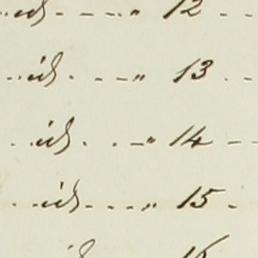 ..id. ---„ 12 --
..id. . --„ 13 . --
..id. . .-„ 14 --
..id. ---„ 15 -
id 16